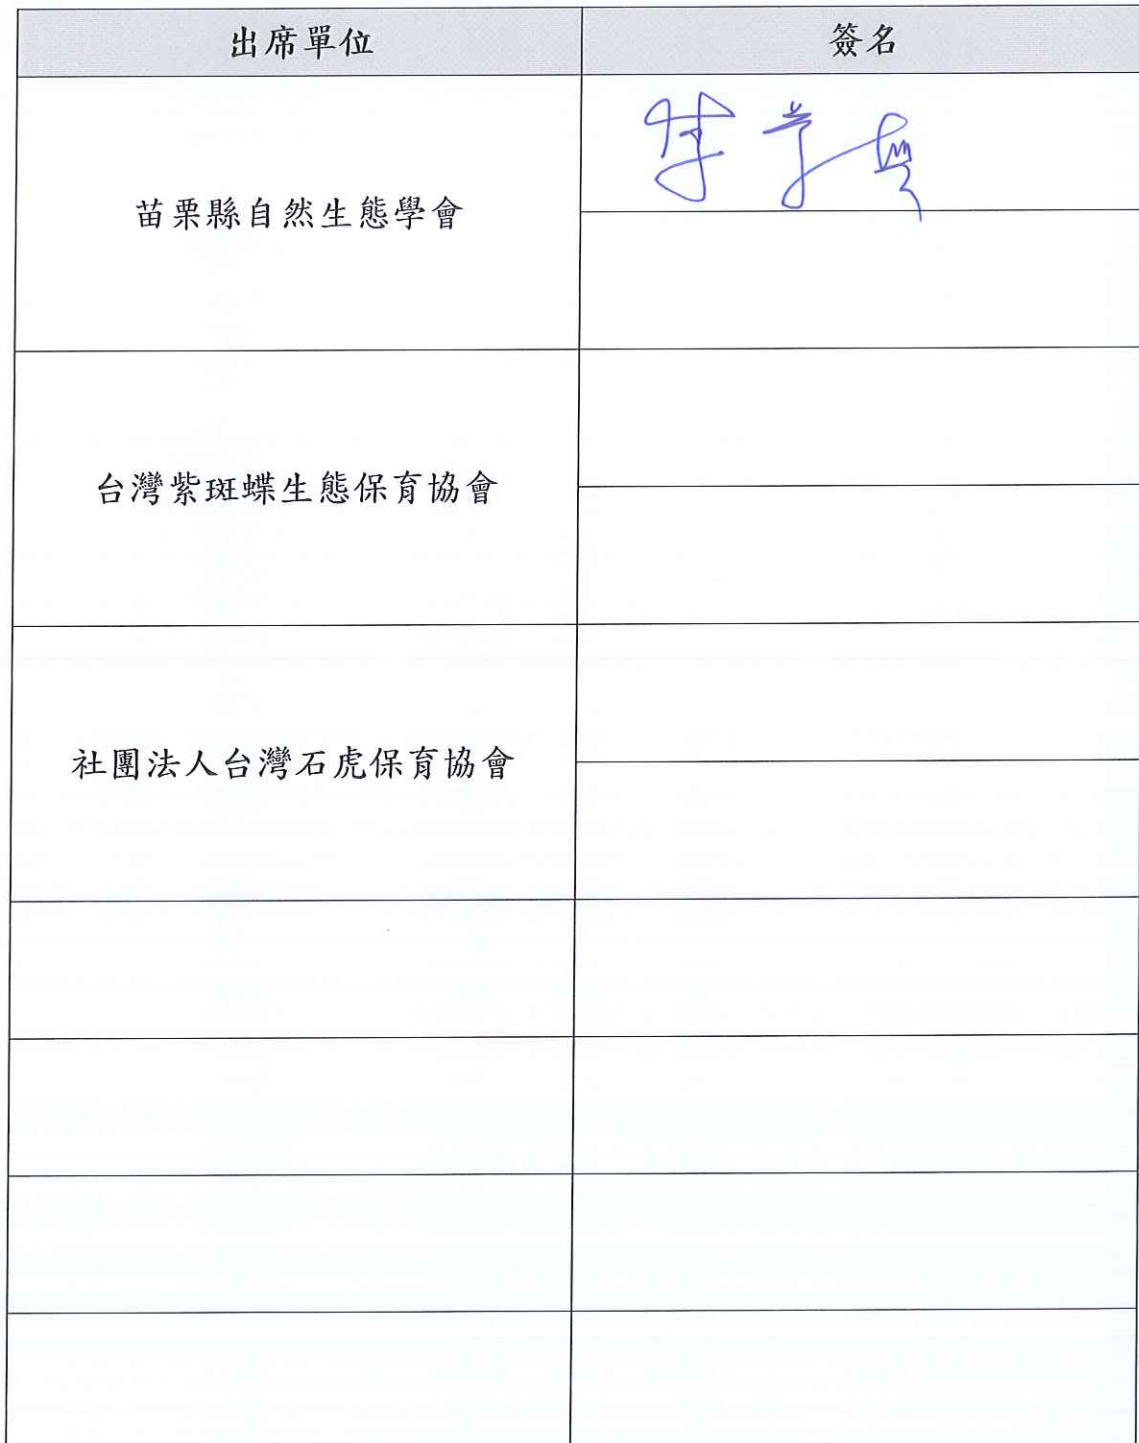 出席單位
簽名
苗栗縣自然生態學會
台灣紫斑蝶生態保育協會
社團法人台灣石虎保育協會